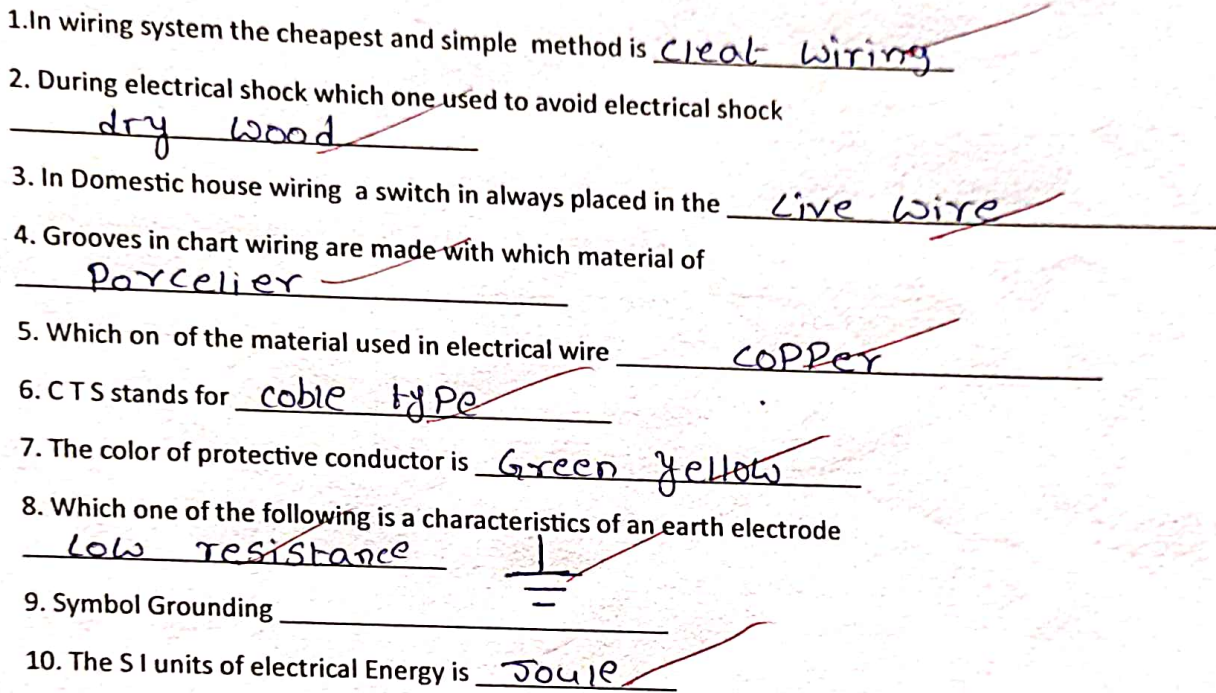 1.In wiring system the cheapest and simple method is Cleat wiring
2. During electrical shock which one used to avoid electrical shock
dry wood
3. In Domestic house wiring a switch in always placed in the Live wire
4. Grooves in chart wiring are made with which material of
Porcelier
5. Which on of the material used in electrical wire copper
6. C T S stands for coble type
7. The color of protective conductor is Green yellow
8. Which one of the following is a characteristics of an earth electrode
Low resistance
9. Symbol Grounding
10. The S I units of electrical Energy is Joule